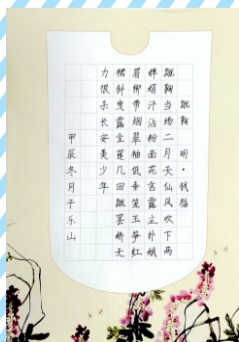 蹴鞠 明·钱福
蹴鞠当场二月天仙风吹下两
婵娟汗沾粉面花含露尘扑蛾
眉柳带烟翠袖低垂笼玉笋红
裙斜曳露金莲几回蹴罢娇无
力恨杀长安美少年
甲辰冬月于乐山